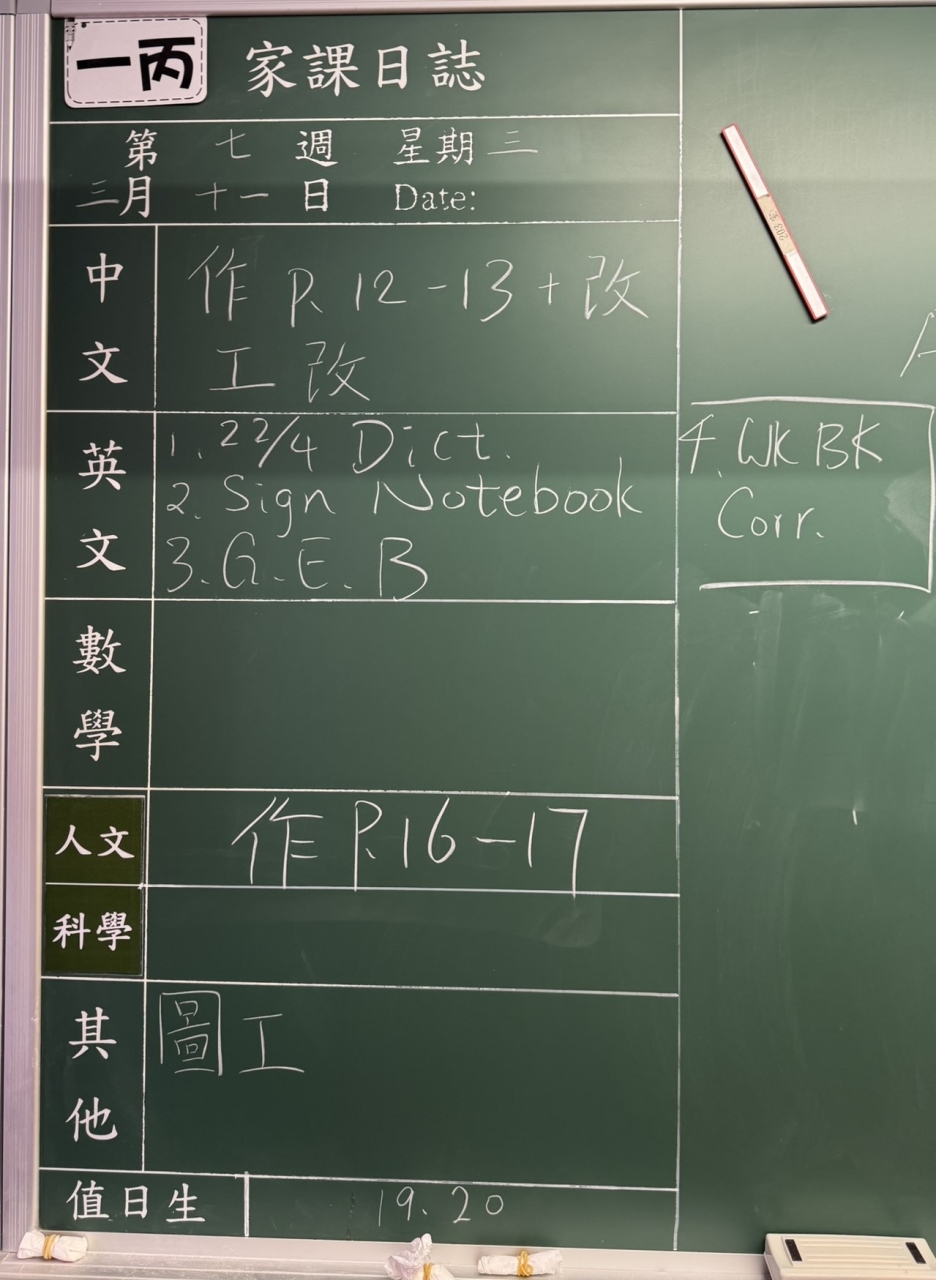 一丙 家課日誌
第 七 週 星期三
三月 十一 日 Date:
中文
作 P. 12-13 + 改
工 改
英文
1. 22/4 Dict.
2. Sign Notebook
3. G.E.B
4. WK BK
Corr.
數學
人文
作 P.16-17
科學
其他
圖工
值日生 19.20